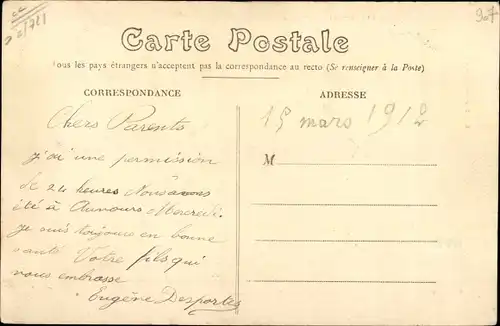 Carte Postale
Tous les pays étrangers n'acceptent pas la correspondance au recto (Se renseigner à la Poste)
CORRESPONDANCE
ADRESSE
15 mars 1912
M
Chers Parents
j'ai une permission
de 24 heures Nous avons
été à Auvours Mercredi.
je suis toujours en bonne
santé Votre fils qui
vous embrasse
Eugène Desportes